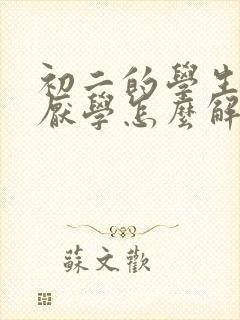 初二的學生
厭學怎麼解
蘇文歡